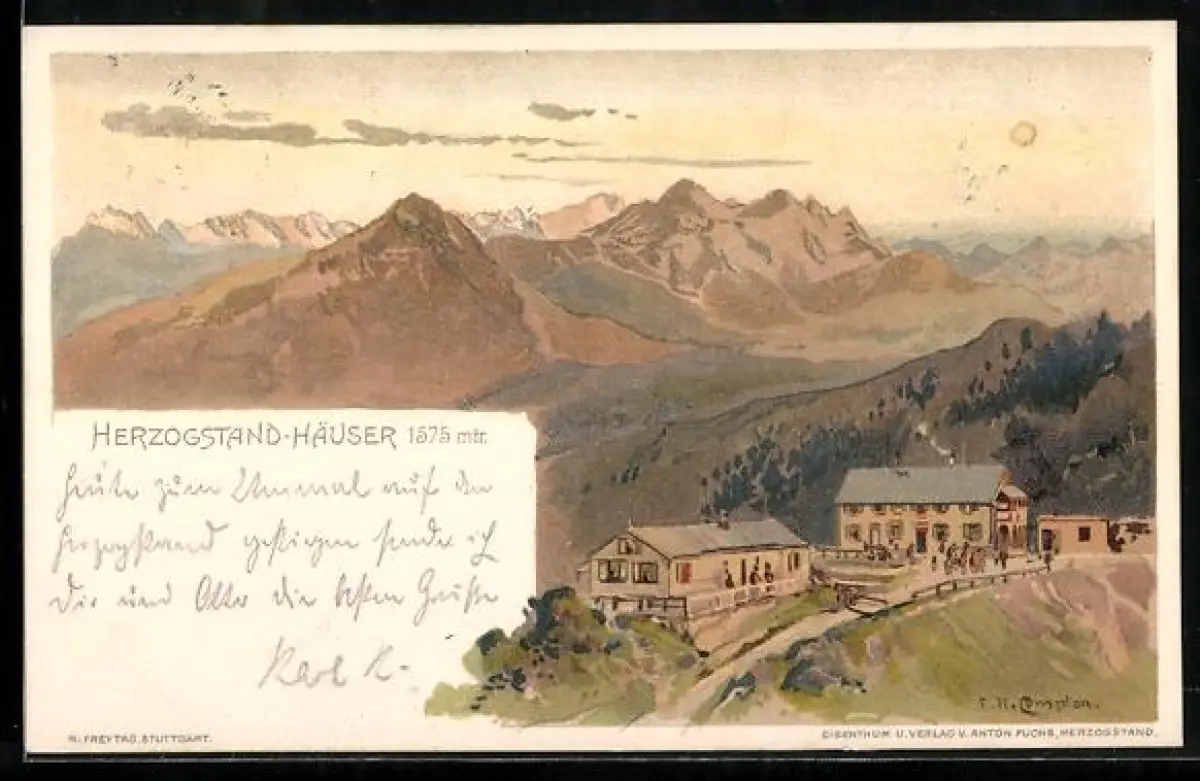 HERZOGSTAND-HÄUSER 1575 mtr.
Heute zum Ummal auf den
Herzogstand gestiegen sende ich
Dir und Otto die besten Grüße
Karl K.
E. H. Compton.
H. FREYTAG, STUTTGART.
EIGENTHUM U. VERLAG V. ANTON FUCHS, HERZOGSTAND.